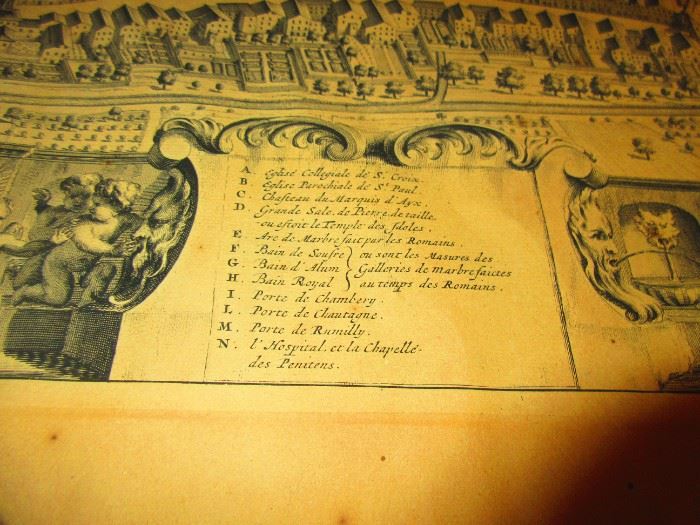 A. Eglise Collegiale de S.t Croix.
B. Eglise Parochiale de S.t Paul.
C. Chasteau du Marquis d'Ayx.
D. Grande Sale de Pierre de taille
ou estoit le Temple des Idoles.
E. Arc de Marbre fait par les Romains.
F. Bain de Soufre } ou sont les Masures des
G. Bain d'Alum } Galleries de marbre faictes
H. Bain Royal } au temps des Romains.
I. Porte de Chambery.
L. Porte de Chautagne.
M. Porte de Rumilly.
N. l'Hospital, et la Chapelle
des Penitens.